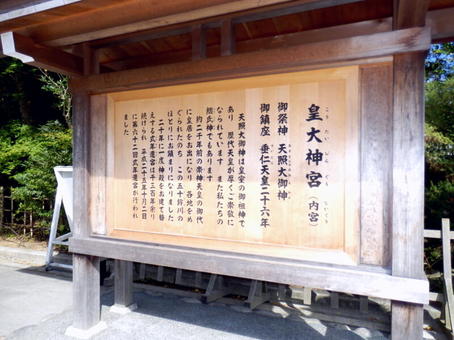 皇大神宮（内宮）
こうたいじんぐう
ないくう
御祭神 天照大御神
御鎮座 垂仁天皇二十六年
天照大御神は皇室の御祖神で
あり 歴代天皇が厚くご崇敬に
なられています また私たちの
総氏神でもあります
約二千年前の崇神天皇の御代
に皇居をお出になり 各地をめ
ぐられたのち この五十鈴川の
ほとりにお鎮まりになりました
二十年に一度神殿をお建て替
えする式年遷宮は千三百年余り
続けられ 平成二十五年十月二日
に第六十二回式年遷宮が行われ
ました